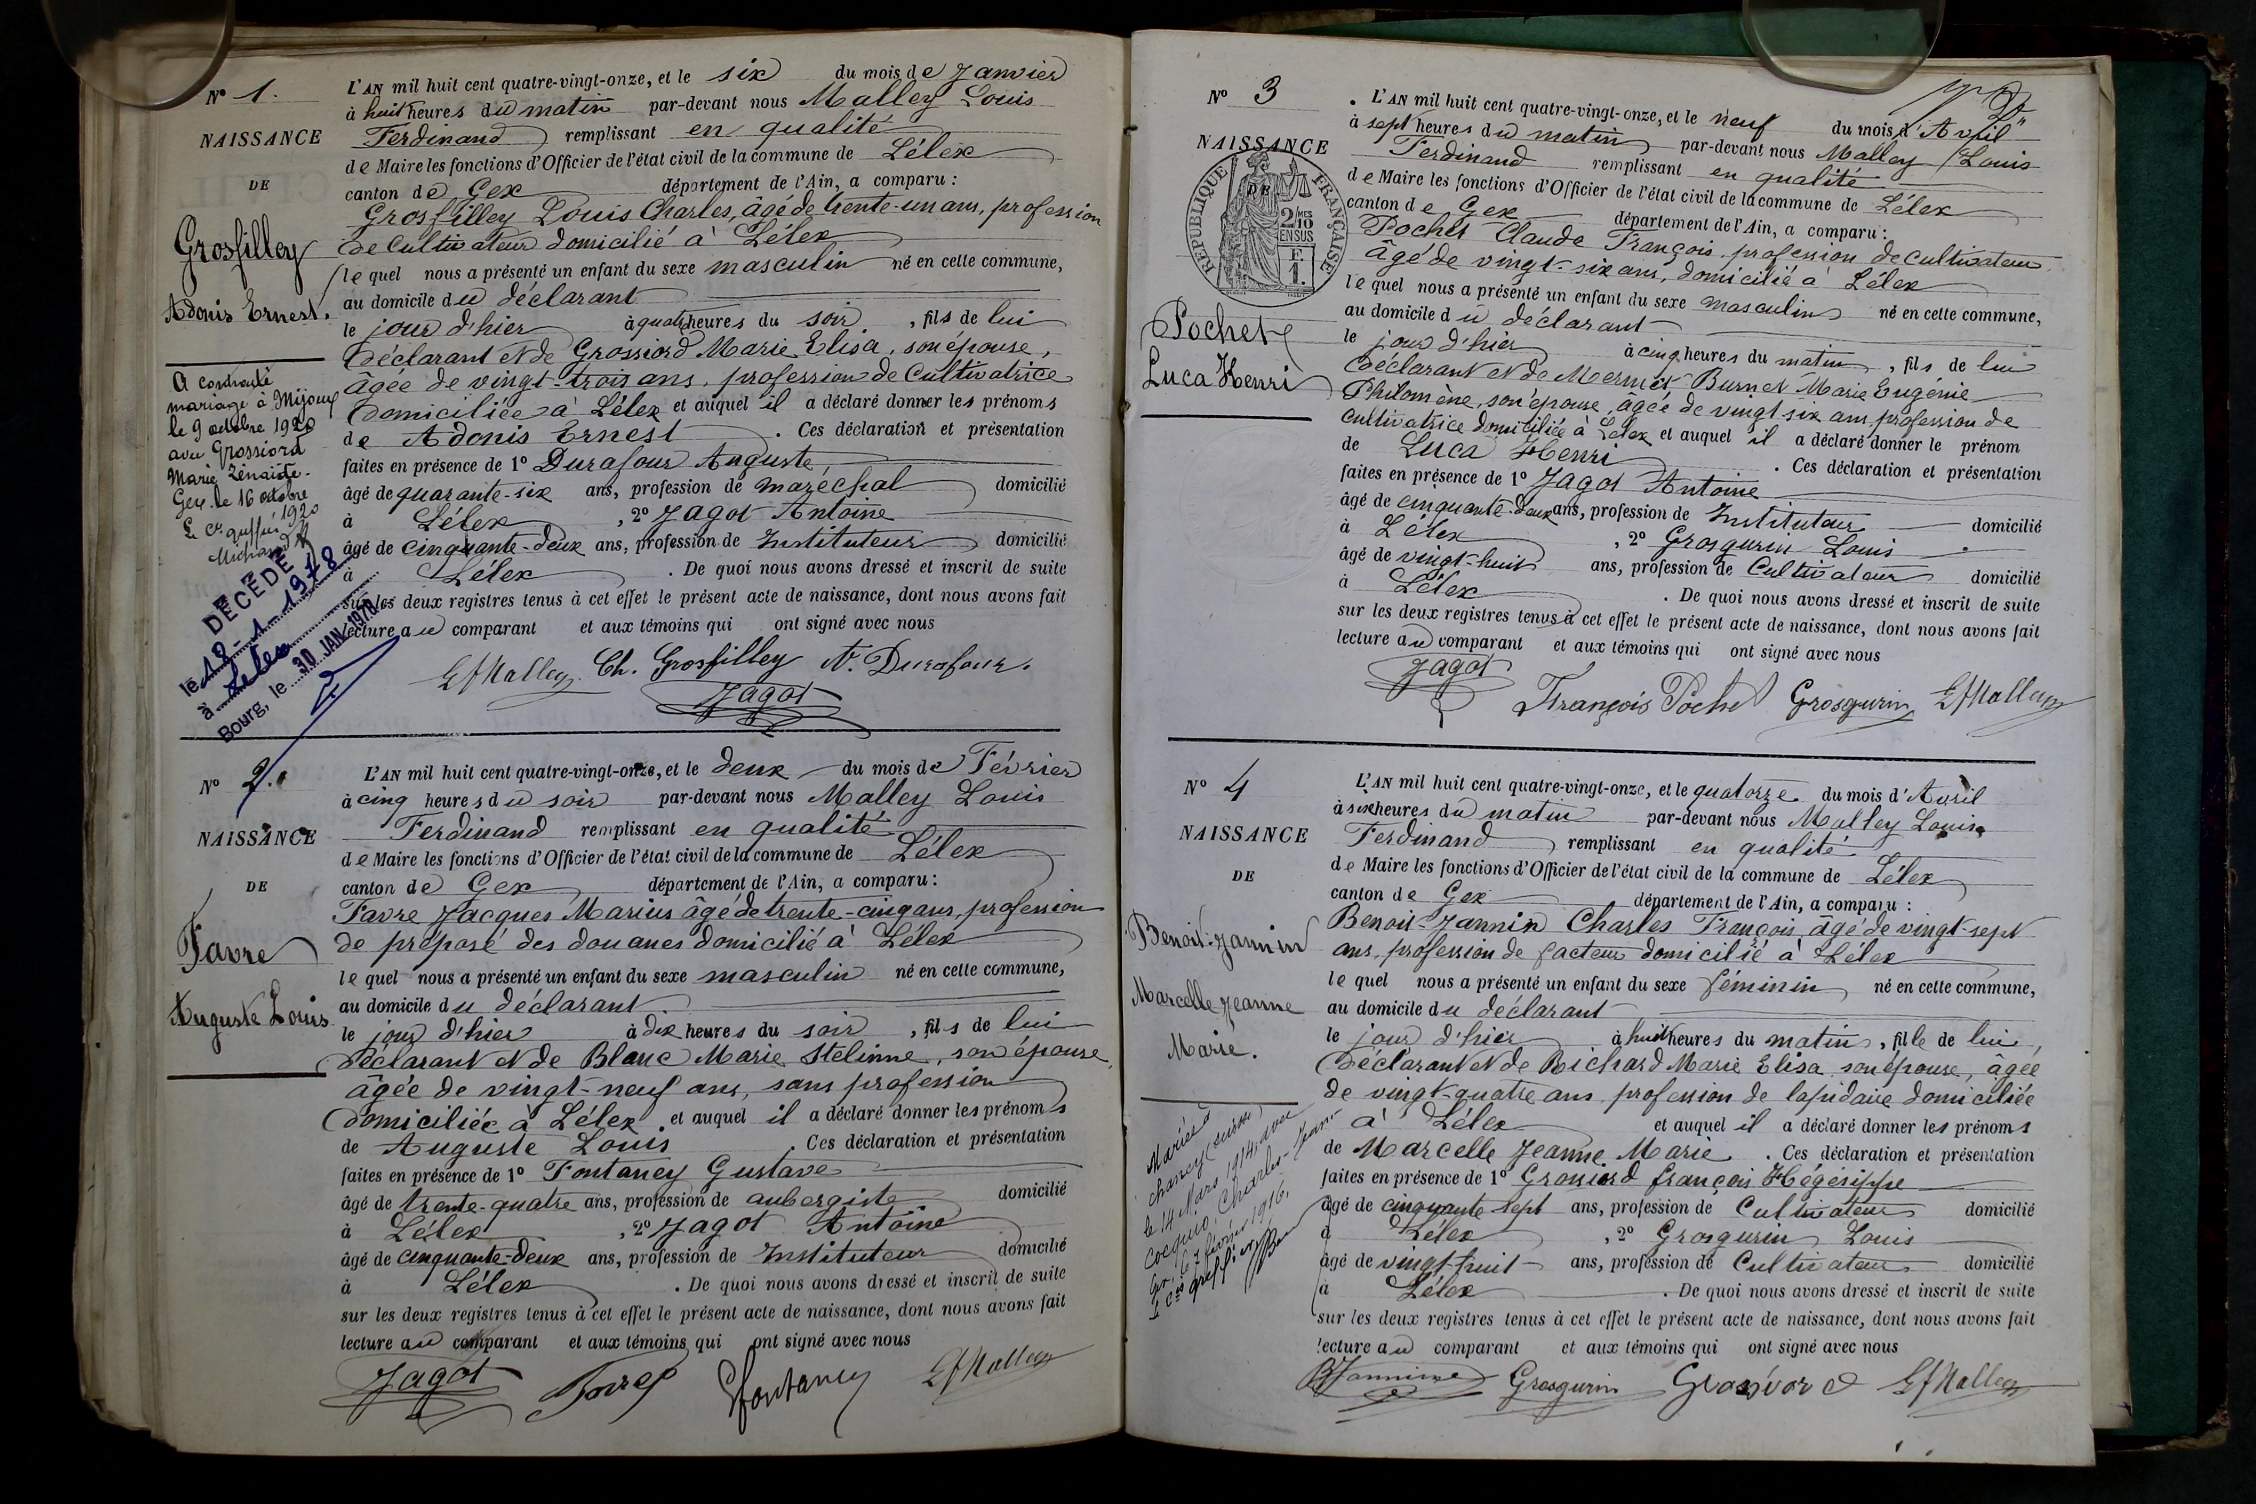 N° 1.
NAISSANCE
DE
Grosfilley
Adonis Ernest.
A contracté
mariage à Mijoux
le 9 octobre 1920
avec Grossiord
Marie Zénaïde.
Gex le 16 octobre
1920
Le Cs greffier
DÉCÉDÉ
le 18-1-1978
à Lélex
Bourg, le 30 JAN. 1978
L'AN mil huit cent quatre-vingt-onze, et le six du mois de Janvier
à huit heures du matin par-devant nous Malley Louis
Ferdinand remplissant en qualité
de Maire les fonctions d'Officier de l'état civil de la commune de Lélex
canton de Gex département de l'Ain, a comparu :
Grosfilley Louis Charles, âgé de trente-un ans, profession
de Cultivateur domicilié à Lélex
lequel nous a présenté un enfant du sexe masculin né en cette commune,
au domicile du déclarant
le jour d'hier à quatre heures du soir, fils de lui
déclarant et de Grossiord Marie Elisa, son épouse,
âgée de vingt-trois ans, profession de Cultivatrice
domiciliée à Lélex et auquel il a déclaré donner les prénoms
de Adonis Ernest. Ces déclaration et présentation
faites en présence de 1° Durafour Auguste,
âgé de quarante-six ans, profession de maréchal domicilié
à Lélex, 2° Jagot Antoine
âgé de cinquante-deux ans, profession de Instituteur domicilié
à Lélex. De quoi nous avons dressé et inscrit de suite
sur les deux registres tenus à cet effet le présent acte de naissance, dont nous avons fait
lecture au comparant et aux témoins qui ont signé avec nous
LfMalley. Ch. Grosfilley A. Durafour.
Jagot
N° 2.
NAISSANCE
DE
Favre
Auguste Louis
L'AN mil huit cent quatre-vingt-onze, et le deux du mois de Février
à cinq heures du soir par-devant nous Malley Louis
Ferdinand remplissant en qualité
de Maire les fonctions d'Officier de l'état civil de la commune de Lélex
canton de Gex département de l'Ain, a comparu :
Favre Jacques Marius âgé de trente-cinq ans, profession
de préposé des douanes domicilié à Lélex
lequel nous a présenté un enfant du sexe masculin né en cette commune,
au domicile du déclarant
le jour d'hier à dix heures du soir, fils de lui
déclarant et de Blanc Marie Stelinne, son épouse,
âgée de vingt-neuf ans, sans profession
domiciliée à Lélex et auquel il a déclaré donner les prénoms
de Auguste Louis. Ces déclaration et présentation
faites en présence de 1° Fontaney Gustave
âgé de trente-quatre ans, profession de aubergiste domicilié
à Lélex, 2° Jagot Antoine
âgé de cinquante-deux ans, profession de Instituteur domicilié
à Lélex. De quoi nous avons dressé et inscrit de suite
sur les deux registres tenus à cet effet le présent acte de naissance, dont nous avons fait
lecture au comparant et aux témoins qui ont signé avec nous
Jagot Favre Gfontaney LfMalley
N° 3
NAISSANCE
DE
RÉPUBLIQUE FRANÇAISE
2/10 MES
EN SUS
F.
1.
Pochet
Luca Henri
L'AN mil huit cent quatre-vingt-onze, et le neuf du mois d'Avril
à sept heures du matin par-devant nous Malley Louis
Ferdinand remplissant en qualité
de Maire les fonctions d'Officier de l'état civil de la commune de Lélex
canton de Gex département de l'Ain, a comparu :
Pochet Claude François, profession de cultivateur
âgé de vingt-six ans, domicilié à Lélex
lequel nous a présenté un enfant du sexe masculin né en cette commune,
au domicile du déclarant
le jour d'hier à cinq heures du matin, fils de lui
déclarant et de Mermet Burnet Marie Eugénie
Philomène, son épouse, âgée de vingt six ans profession de
cultivatrice domiciliée à Lélex et auquel il a déclaré donner le prénom
de Luca Henri. Ces déclaration et présentation
faites en présence de 1° Jagot Antoine
âgé de cinquante-deux ans, profession de Instituteur domicilié
à Lélex, 2° Grosgurin Louis
âgé de vingt-huit ans, profession de Cultivateur domicilié
à Lélex. De quoi nous avons dressé et inscrit de suite
sur les deux registres tenus à cet effet le présent acte de naissance, dont nous avons fait
lecture au comparant et aux témoins qui ont signé avec nous
Jagot
François Pochet Grosgurin LfMalley
N° 4
NAISSANCE
DE
Benoit-Jannin
Marcelle Jeanne
Marie.
Mariée à
Chancy (suisse)
le 14 Mars 1914, avec
Coequio Charles-Jean
Gex, le 7 février 1916.
Le Cs greffier
L'AN mil huit cent quatre-vingt-onze, et le quatorze du mois d'Avril
à six heures du matin par-devant nous Malley Louis
Ferdinand remplissant en qualité
de Maire les fonctions d'Officier de l'état civil de la commune de Lélex
canton de Gex département de l'Ain, a comparu :
Benoit-Jannin Charles François, âgé de vingt-sept
ans, profession de facteur domicilié à Lélex
lequel nous a présenté un enfant du sexe féminin né en cette commune,
au domicile du déclarant
le jour d'hier à huit heures du matin, fille de lui,
déclarant et de Richard Marie Elisa son épouse, âgée
de vingt-quatre ans profession de lapidaire domiciliée
à Lélex et auquel il a déclaré donner les prénoms
de Marcelle Jeanne Marie. Ces déclaration et présentation
faites en présence de 1° Grossiord françois Hégésippe
âgé de cinquante sept ans, profession de Cultivateur domicilié
à Lélex, 2° Grosgurin Louis
âgé de vingt-huit ans, profession de Cultivateur domicilié
à Lélex. De quoi nous avons dressé et inscrit de suite
sur les deux registres tenus à cet effet le présent acte de naissance, dont nous avons fait
lecture au comparant et aux témoins qui ont signé avec nous
BJannin Grosgurin Grossiord LfMalley